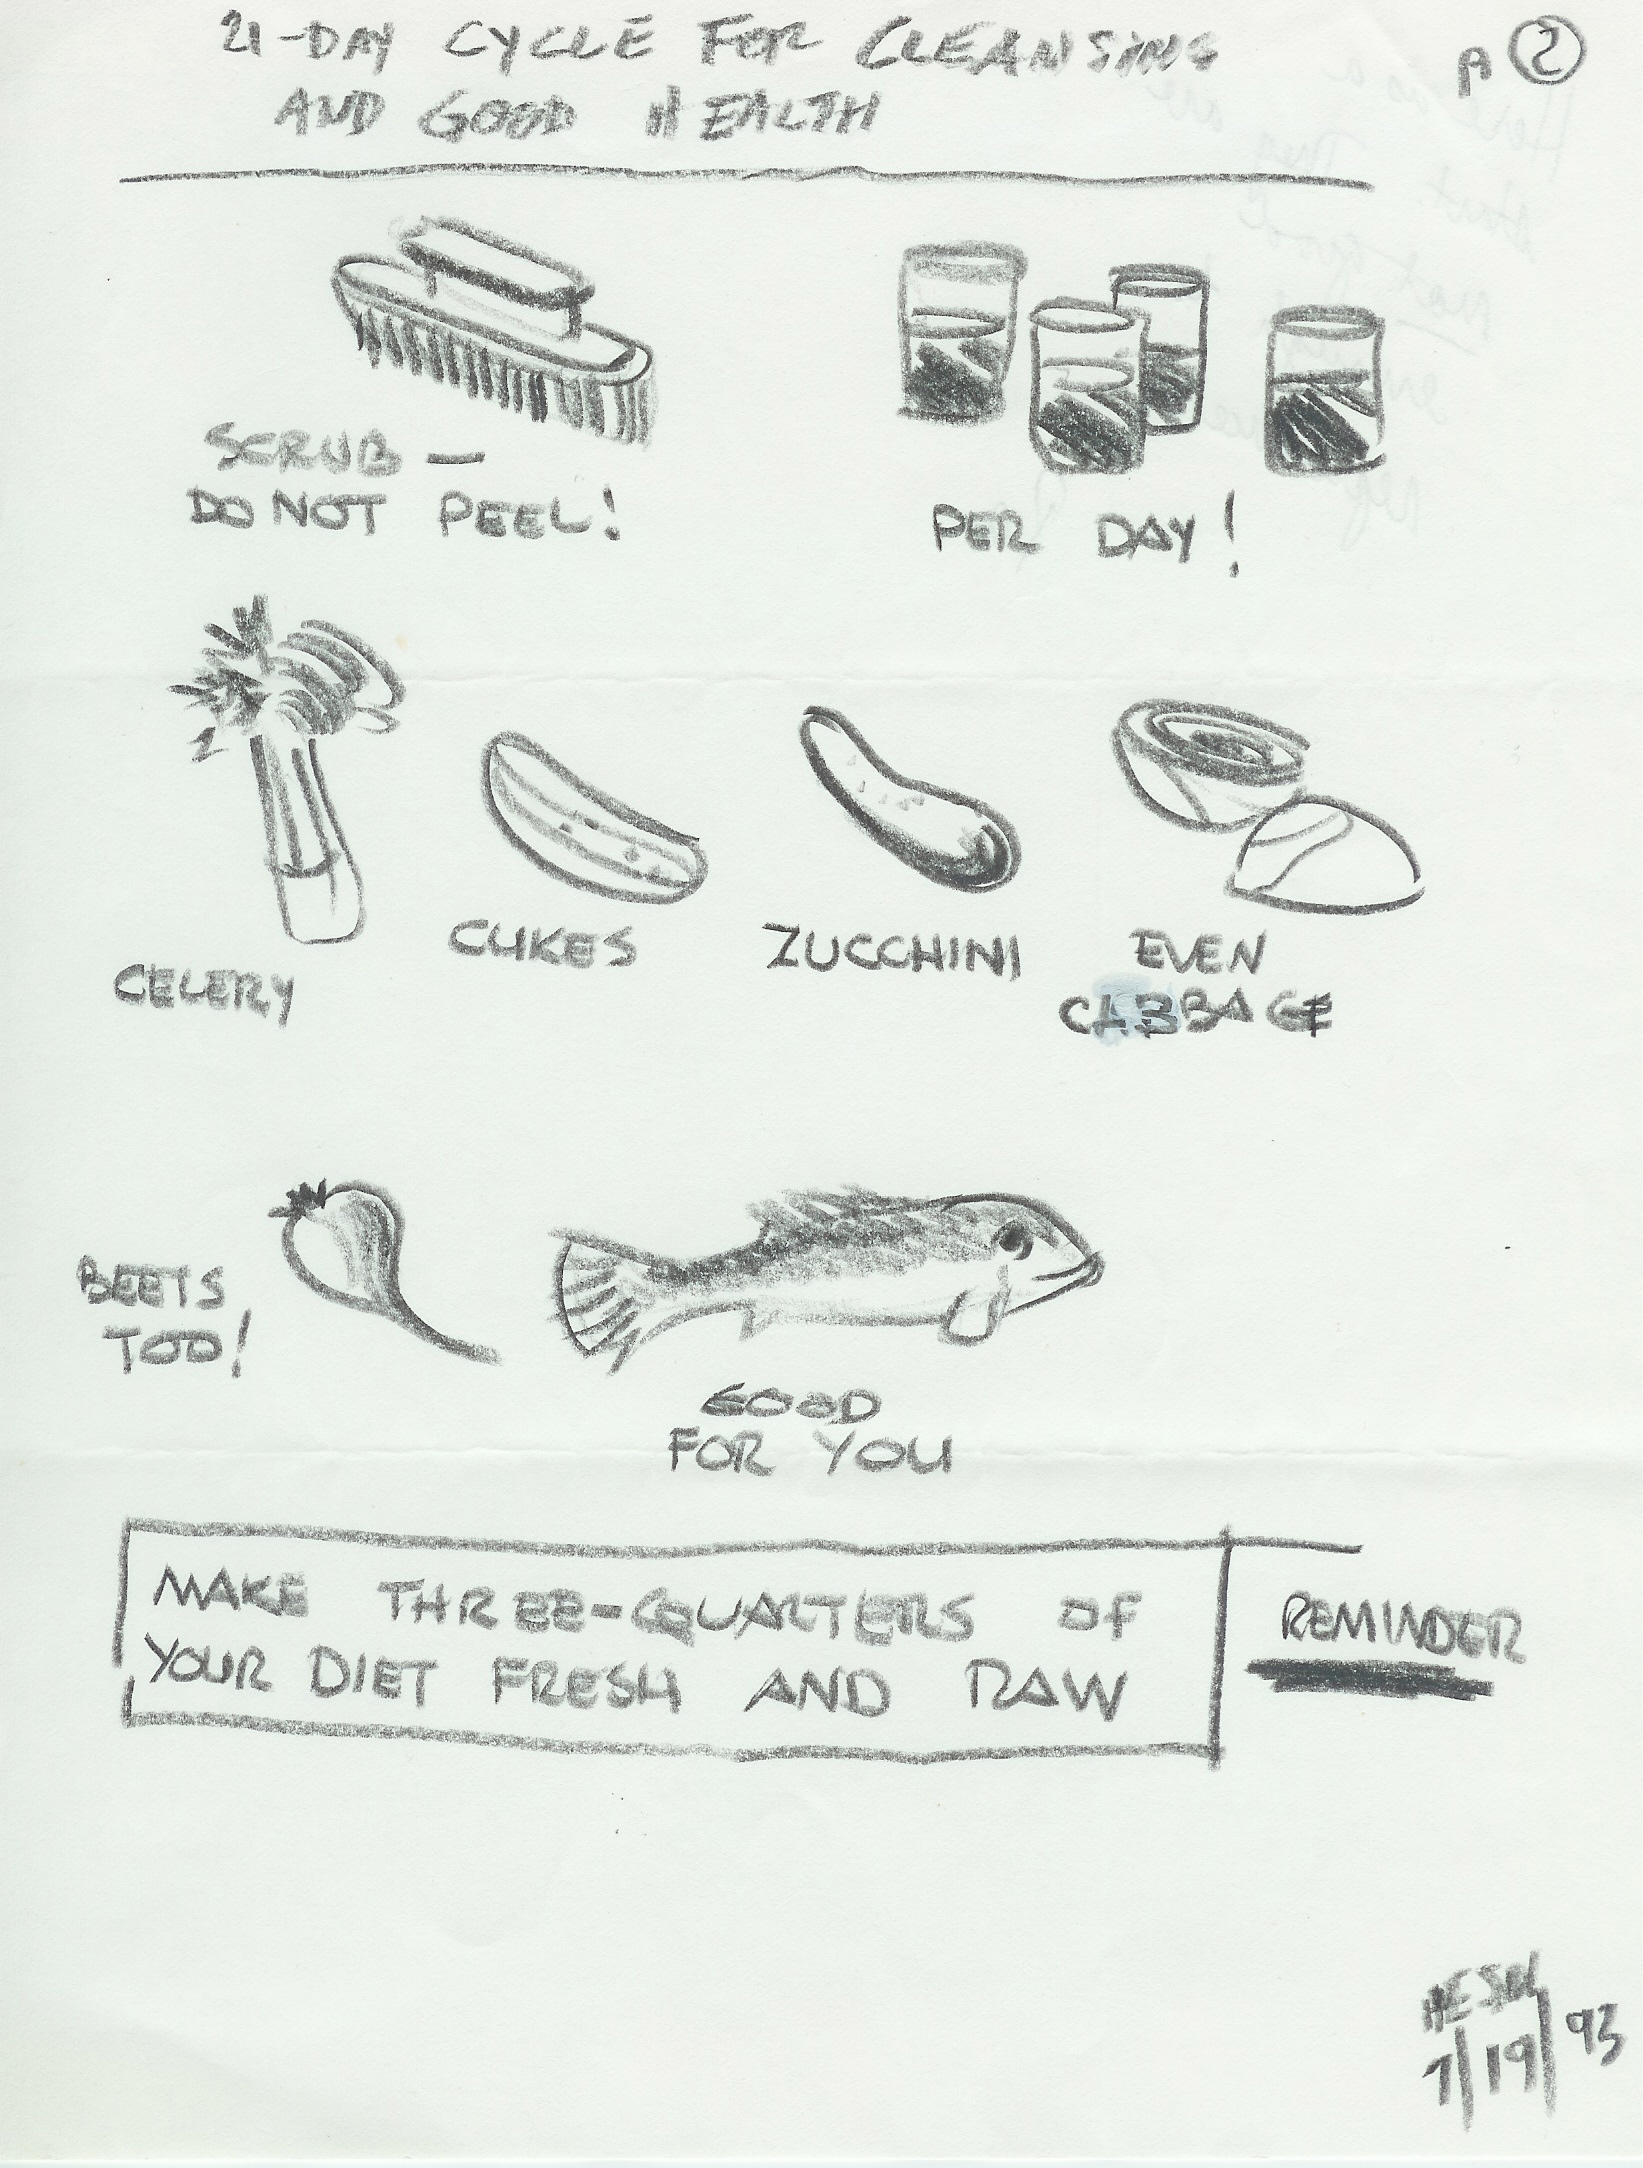 21-DAY CYCLE FOR CLEANSING
AND GOOD HEALTH
P 2
SCRUB —
DO NOT PEEL!
PER DAY!
CELERY
CUKES
ZUCCHINI
EVEN
CABBAGE
BEETS
TOO!
GOOD
FOR YOU
MAKE THREE-QUARTERS OF
YOUR DIET FRESH AND RAW
REMINDER
7/19/93